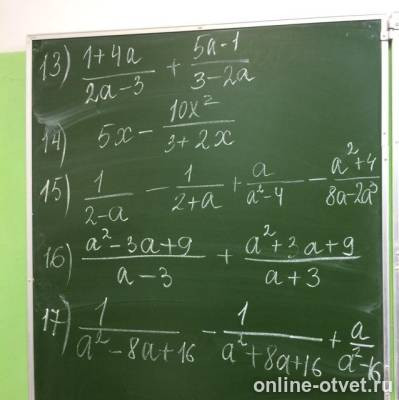 13) (1+4a)/(2a-3) + (5a-1)/(3-2a)
14) 5x - 10x²/(3+2x)
15) 1/(2-a) - 1/(2+a) + a/(a²-4) - (a²+4)/(8a-2a³)
16) (a²-3a+9)/(a-3) + (a²+3a+9)/(a+3)
17) 1/(a²-8a+16) - 1/(a²+8a+16) + a/(a²-16)
online-otvet.ru